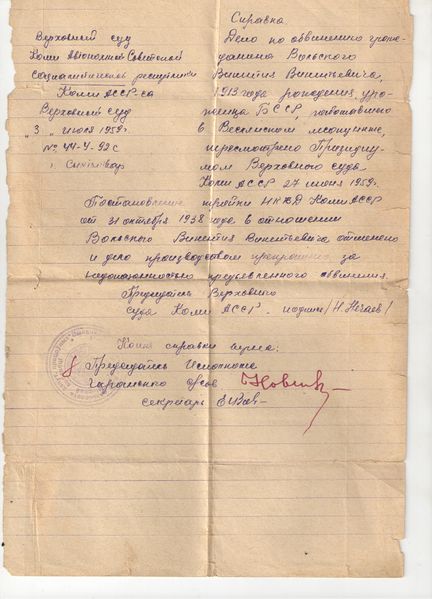 Справка
Верховный суд
Коми Автономной Советской
социалистической республики
Коми АССР-са
Верховный суд
"3" июля 1959г.
№ 44-У-92с
г. Сыктывкар
Дело по обвинению граж-
данина Вольского
Викентия Викентьевича,
1913 года рождения, уро-
женца БССР, работавшего
в Веслянском
пересмотрено Президиу-
мом Верховного суда
Коми АССР 27 июня 1959г.
Постановление тройки НКВД Коми АССР
от 31 октября 1938 года в отношении
Вольского Викентия Викентьевича отменено
и дело производством прекращено за
недоказанностью предъявленного обвинения.
Председатель Верховного
суда Коми АССР. подпись /Н. Нечаев/
Копия справки верна:
Председатель Исполкома
секретарь